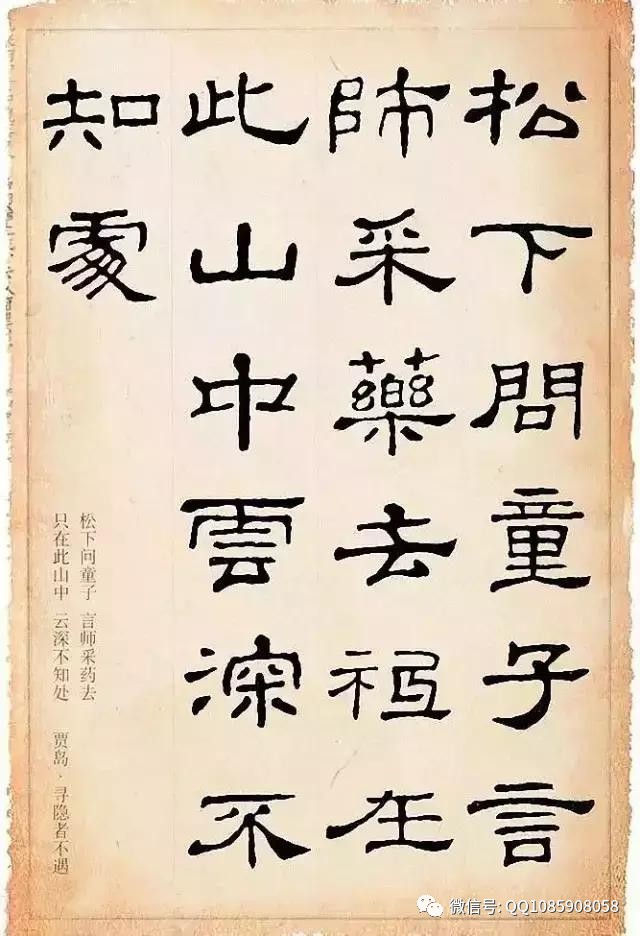 松下問童子言
師采藥去祗在
此山中雲深不
知處
松下问童子 言师采药去
只在此山中 云深不知处 贾岛·寻隐者不遇
微信号: QQ1085908058